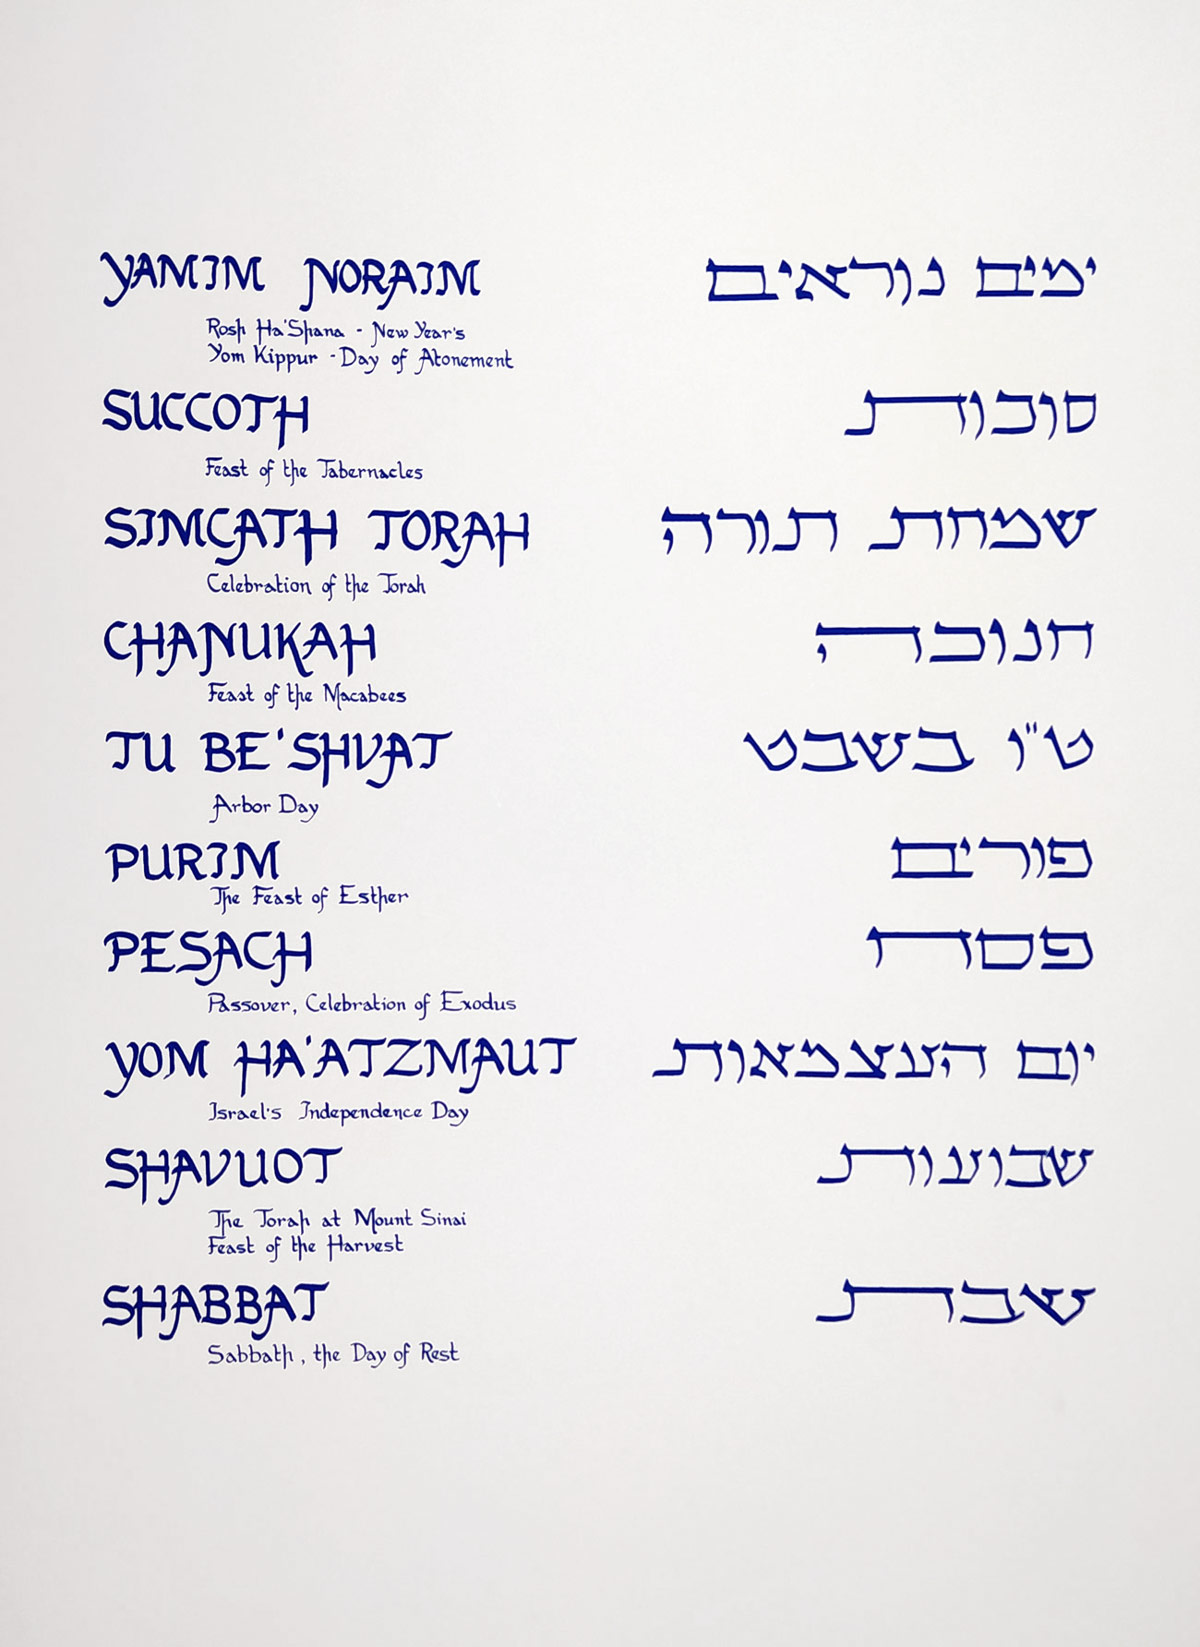 YAMIM NORAIM ימים נוראים
Rosh Ha'Shana - New Year's
Yom Kippur - Day of Atonement
SUCCOTH סוכות
Feast of the Tabernacles
SIMCATH TORAH שמחת תורה
Celebration of the Torah
CHANUKAH חנוכה
Feast of the Macabees
TU BE'SHVAT ט"ו בשבט
Arbor Day
PURIM פורים
The Feast of Esther
PESACH פסח
Passover, Celebration of Exodus
YOM HA'ATZMAUT יום העצמאות
Israel's Independence Day
SHAVUOT שבועות
The Torah at Mount Sinai
Feast of the Harvest
SHABBAT שבת
Sabbath, the Day of Rest